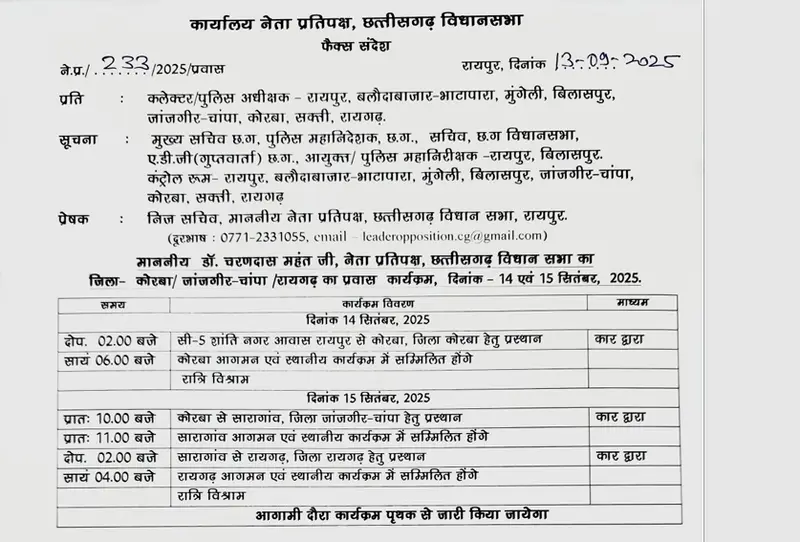 कार्यालय नेता प्रतिपक्ष, छत्तीसगढ़ विधानसभा
फैक्स संदेश
ने.प्र./.233./2025/प्रवास रायपुर, दिनांक 13-09-2025
प्रति : कलेक्टर/पुलिस अधीक्षक - रायपुर, बलौदाबाजार-भाटापारा, मुंगेली, बिलासपुर,
जांजगीर-चांपा, कोरबा, सक्ती, रायगढ़.
सूचना : मुख्य सचिव छ.ग, पुलिस महानिदेशक, छ.ग., सचिव, छ.ग विधानसभा,
ए.डी.जी(गुप्तवार्ता) छ.ग., आयुक्त/ पुलिस महानिरीक्षक -रायपुर, बिलासपुर.
कंट्रोल रूम- रायपुर, बलौदाबाजार-भाटापारा, मुंगेली, बिलासपुर, जांजगीर-चांपा,
कोरबा, सक्ती, रायगढ़
प्रेषक : निज सचिव, माननीय नेता प्रतिपक्ष, छत्तीसगढ़ विधान सभा, रायपुर.
(दूरभाष : 0771-2331055, email – leaderopposition.cg@gmail.com)
माननीय डॉ. चरणदास महंत जी, नेता प्रतिपक्ष, छत्तीसगढ़ विधान सभा का
जिला- कोरबा/ जांजगीर-चांपा /रायगढ़ का प्रवास कार्यक्रम, दिनांक - 14 एवं 15 सितंबर, 2025.
समय कार्यक्रम विवरण माध्यम
दिनांक 14 सितंबर, 2025
दोप. 02.00 बजे सी-5 शांति नगर आवास रायपुर से कोरबा, जिला कोरबा हेतु प्रस्थान कार द्वारा
सायं 06.00 बजे कोरबा आगमन एवं स्थानीय कार्यक्रम में सम्मिलित होंगे
रात्रि विश्राम
दिनांक 15 सितंबर, 2025
प्रातः 10.00 बजे कोरबा से सारागांव, जिला जांजगीर-चांपा हेतु प्रस्थान कार द्वारा
प्रातः 11.00 बजे सारागांव आगमन एवं स्थानीय कार्यक्रम में सम्मिलित होंगे
दोप. 02.00 बजे सारागांव से रायगढ़, जिला रायगढ़ हेतु प्रस्थान कार द्वारा
सायं 04.00 बजे रायगढ़ आगमन एवं स्थानीय कार्यक्रम में सम्मिलित होंगे
रात्रि विश्राम
आगामी दौरा कार्यक्रम पृथक से जारी किया जायेगा